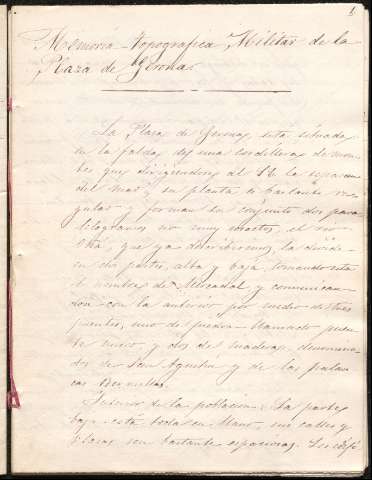 1
Memoria Topografica Militar de la
Plaza de Gerona
La Plaza de Gerona, está situada
en la falda de una cordillera de mon-
tes que dirigiendose al S.E. la separa
del mar; su planta es bastante re-
gular y forman en conjunto dos para-
lelogramos no muy exactos, el rio
Oñá, que ya describiremos, la divide
en dos partes, alta y baja, tomando esta
el nombre de Mercadal y comunican-
dose con la anterior por medio de tres
puentes, uno de piedra llamado puen-
te nuevo, y dos de madera, denomina-
dos de San Agustin y de las pesca-
cas Bernellas.
Interior de la poblacion. La parte
baja está toda en llano, sus calles y
plazas son bastante espaciosas. Los edifi-